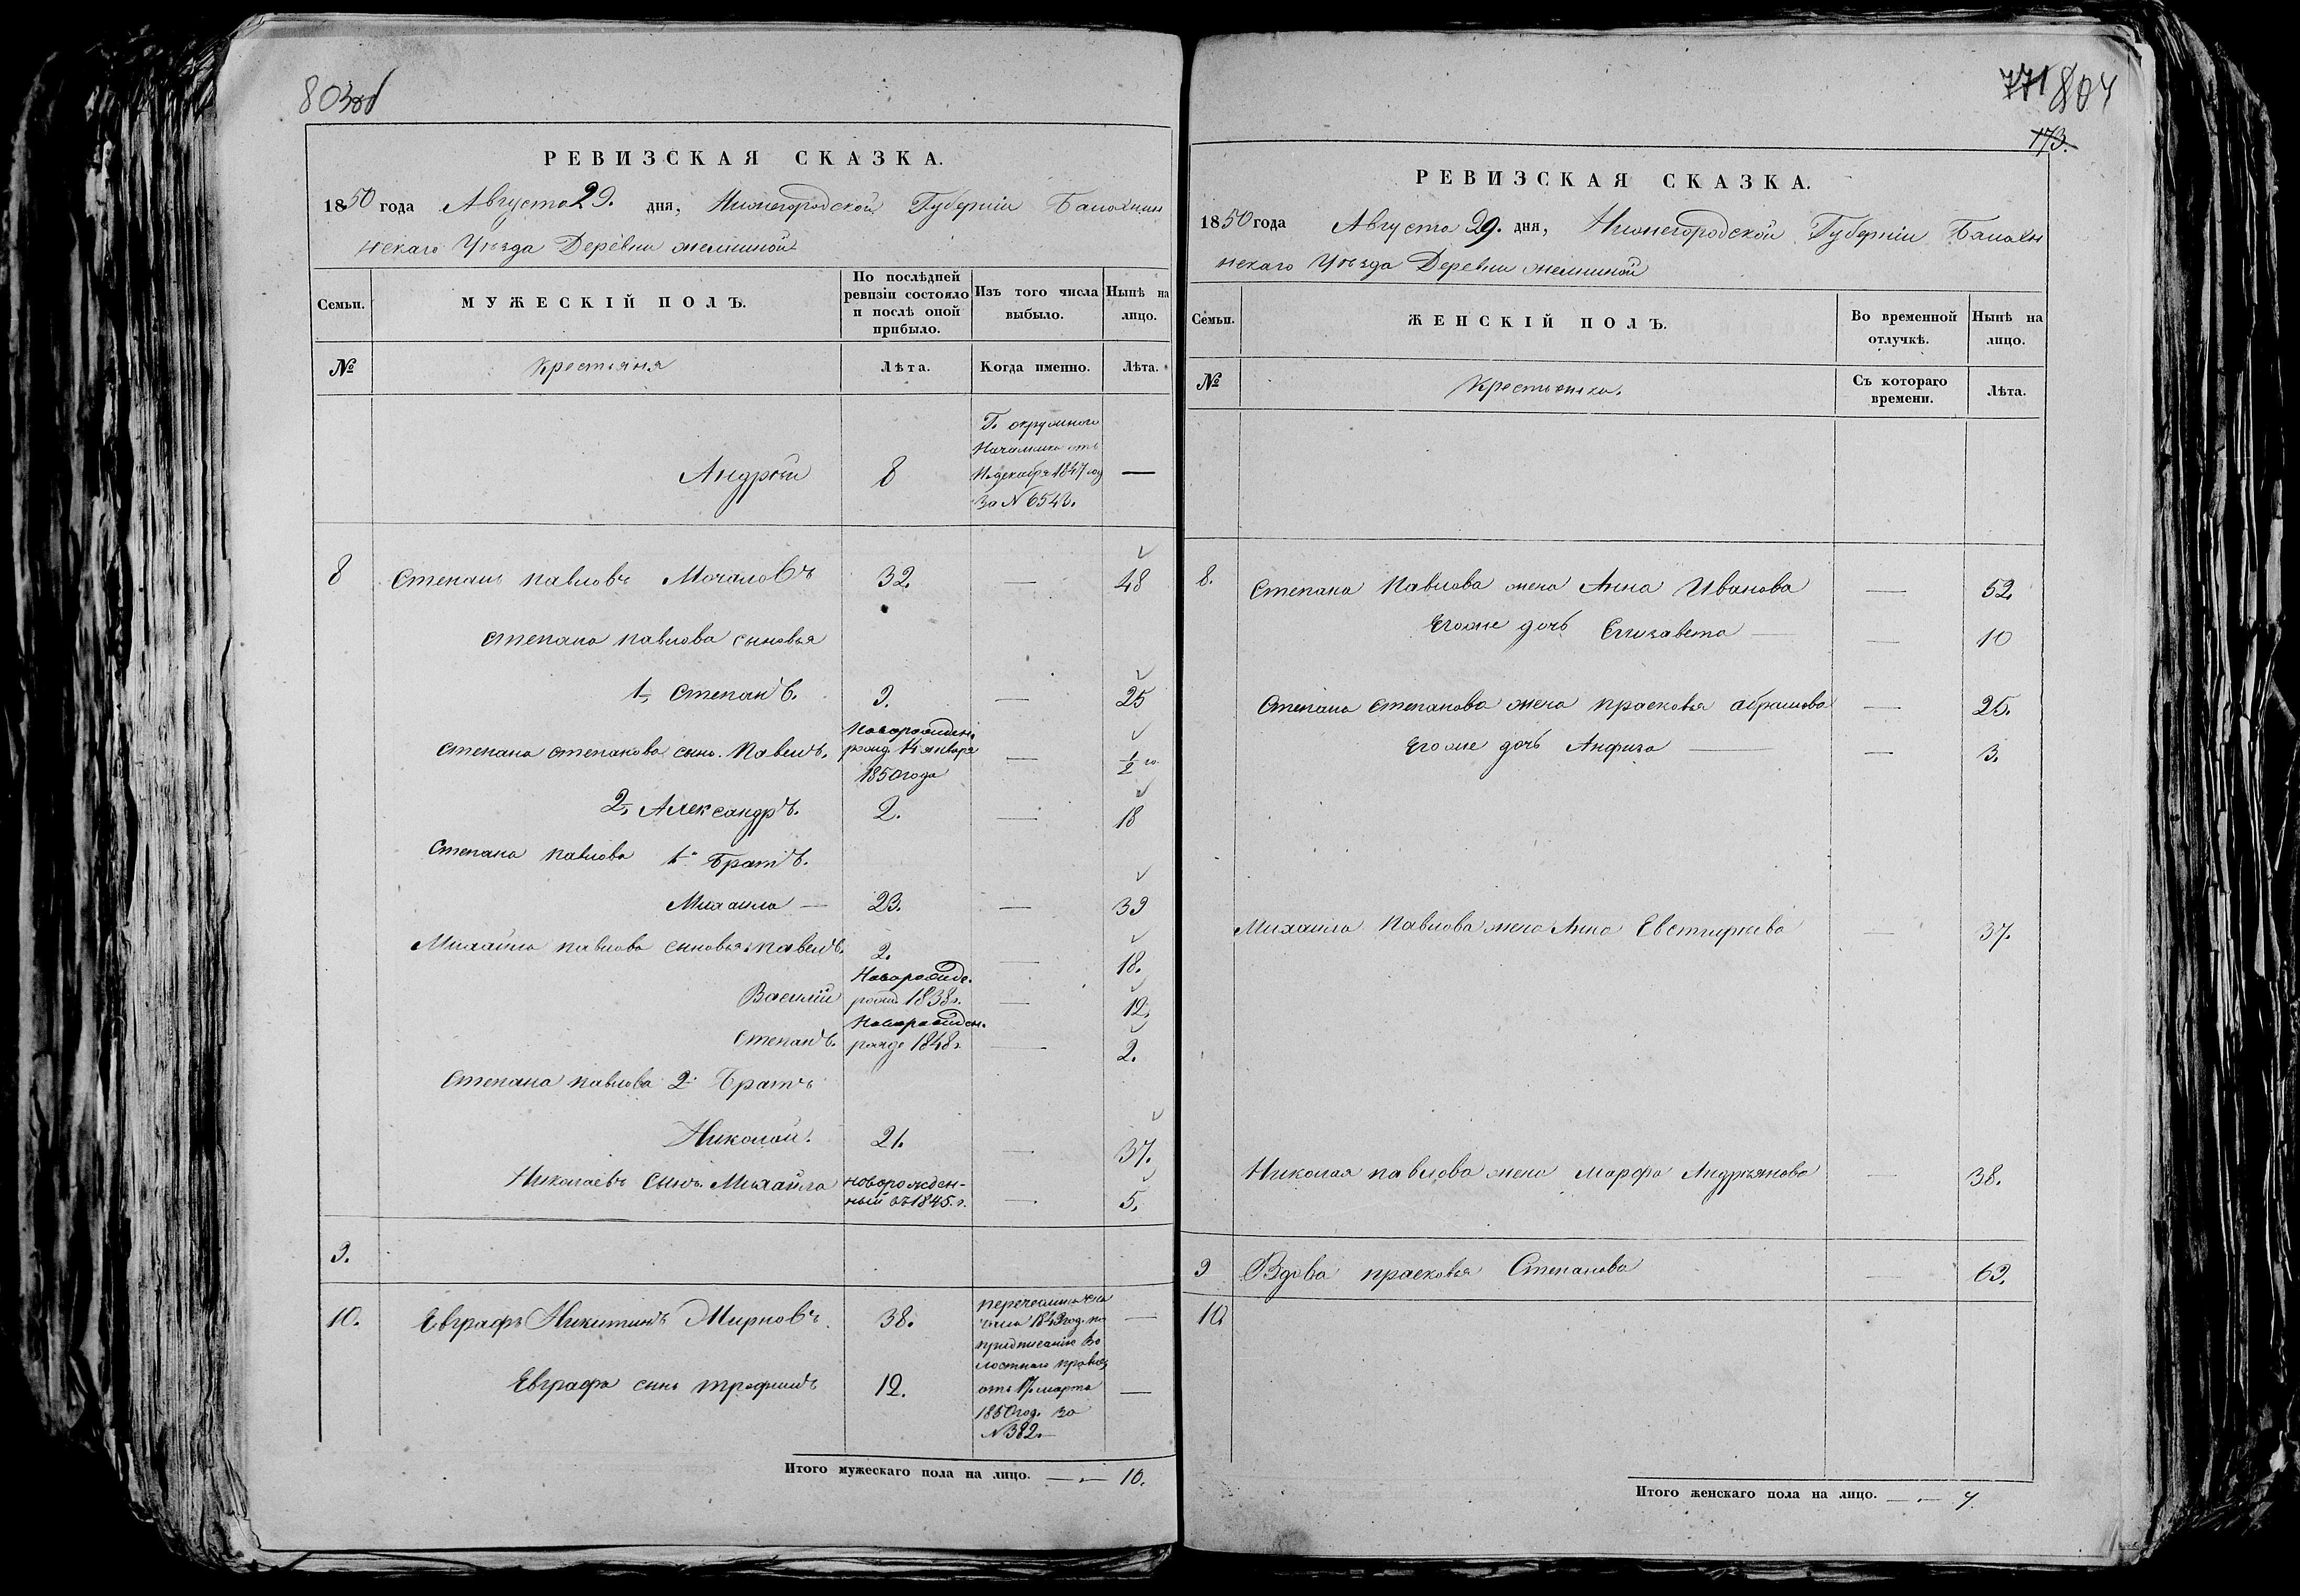 803об
РЕВИЗСКАЯ СКАЗКА.
1850 года Августа 29. дня, Нижегородской Губерніи Балахнин
скаго Уѣзда Деревни
Семьи.
МУЖЕСКІЙ ПОЛЪ.
По послѣдней
ревизіи состояло
и послѣ оной
прибыло.
Изъ того числа
выбыло.
Нынѣ на
лицо.
№
Крестьяня
Лѣта.
Когда именно.
Лѣта.
Г. окружного
Начальника отъ
декабря 1847 год
За № 6543.
Андрей 8 —
8 Степанъ павловъ Мочаловъ 32. — 48
Степана павлова сыновья
1, Степанъ. 9. — 25
Новорожден.
Степана степанова сынъ. Павелъ. рожд. 14 января — 1/2 го
1850 года
2, Александръ. 2. — 18
Степана павлова 1й Братъ.
Михаила — 23. — 39
Михайла павлова сыновья: павелъ. 2. — 18.
Новорожде.
Василій рожд. 1838 г. — 12.
Новорожден.
Степанъ. рожде 1848 г. — 2.
Степана павлова 2й Братъ
Николай. 21. — 37.
Николаевъ сынъ. Михайла новорожден-
ный въ 1845. г. — 5.
9.
10. Евграфъ Никитинъ Мирновъ. 38. —
перечесленна
1849 год. по
предписанію Во
лостного правле
Евграфа сынъ трофимъ 12. отъ 17 марта —
1850 год. за
№ 382.
Итого мужескаго пола на лицо. — 10.
771 804
173.
РЕВИЗСКАЯ СКАЗКА.
1850 года Августа 29. дня, Нижегородской Губерніи Балахн
нскаго Уѣзда Деревни
Семьи.
ЖЕНСКІЙ ПОЛЪ.
Во временной
отлучкѣ.
Нынѣ на
лицо.
№
Крестьянка.
Съ котораго
времени.
Лѣта.
8. Степана Павлова жена Анна Иванова — 52.
Егоже дочь Елизавета — — 10
Степана степанова жена прасковья абрамова — 25.
Егоже дочь Анфиза — — 3.
Михаила Павлова жена Анна Евстифиева — 37.
Николая павлова жена марфа Андреянова — 38.
9 Вдова прасковья Степанова — 63.
10
Итого женскаго пола на лицо. — 7.